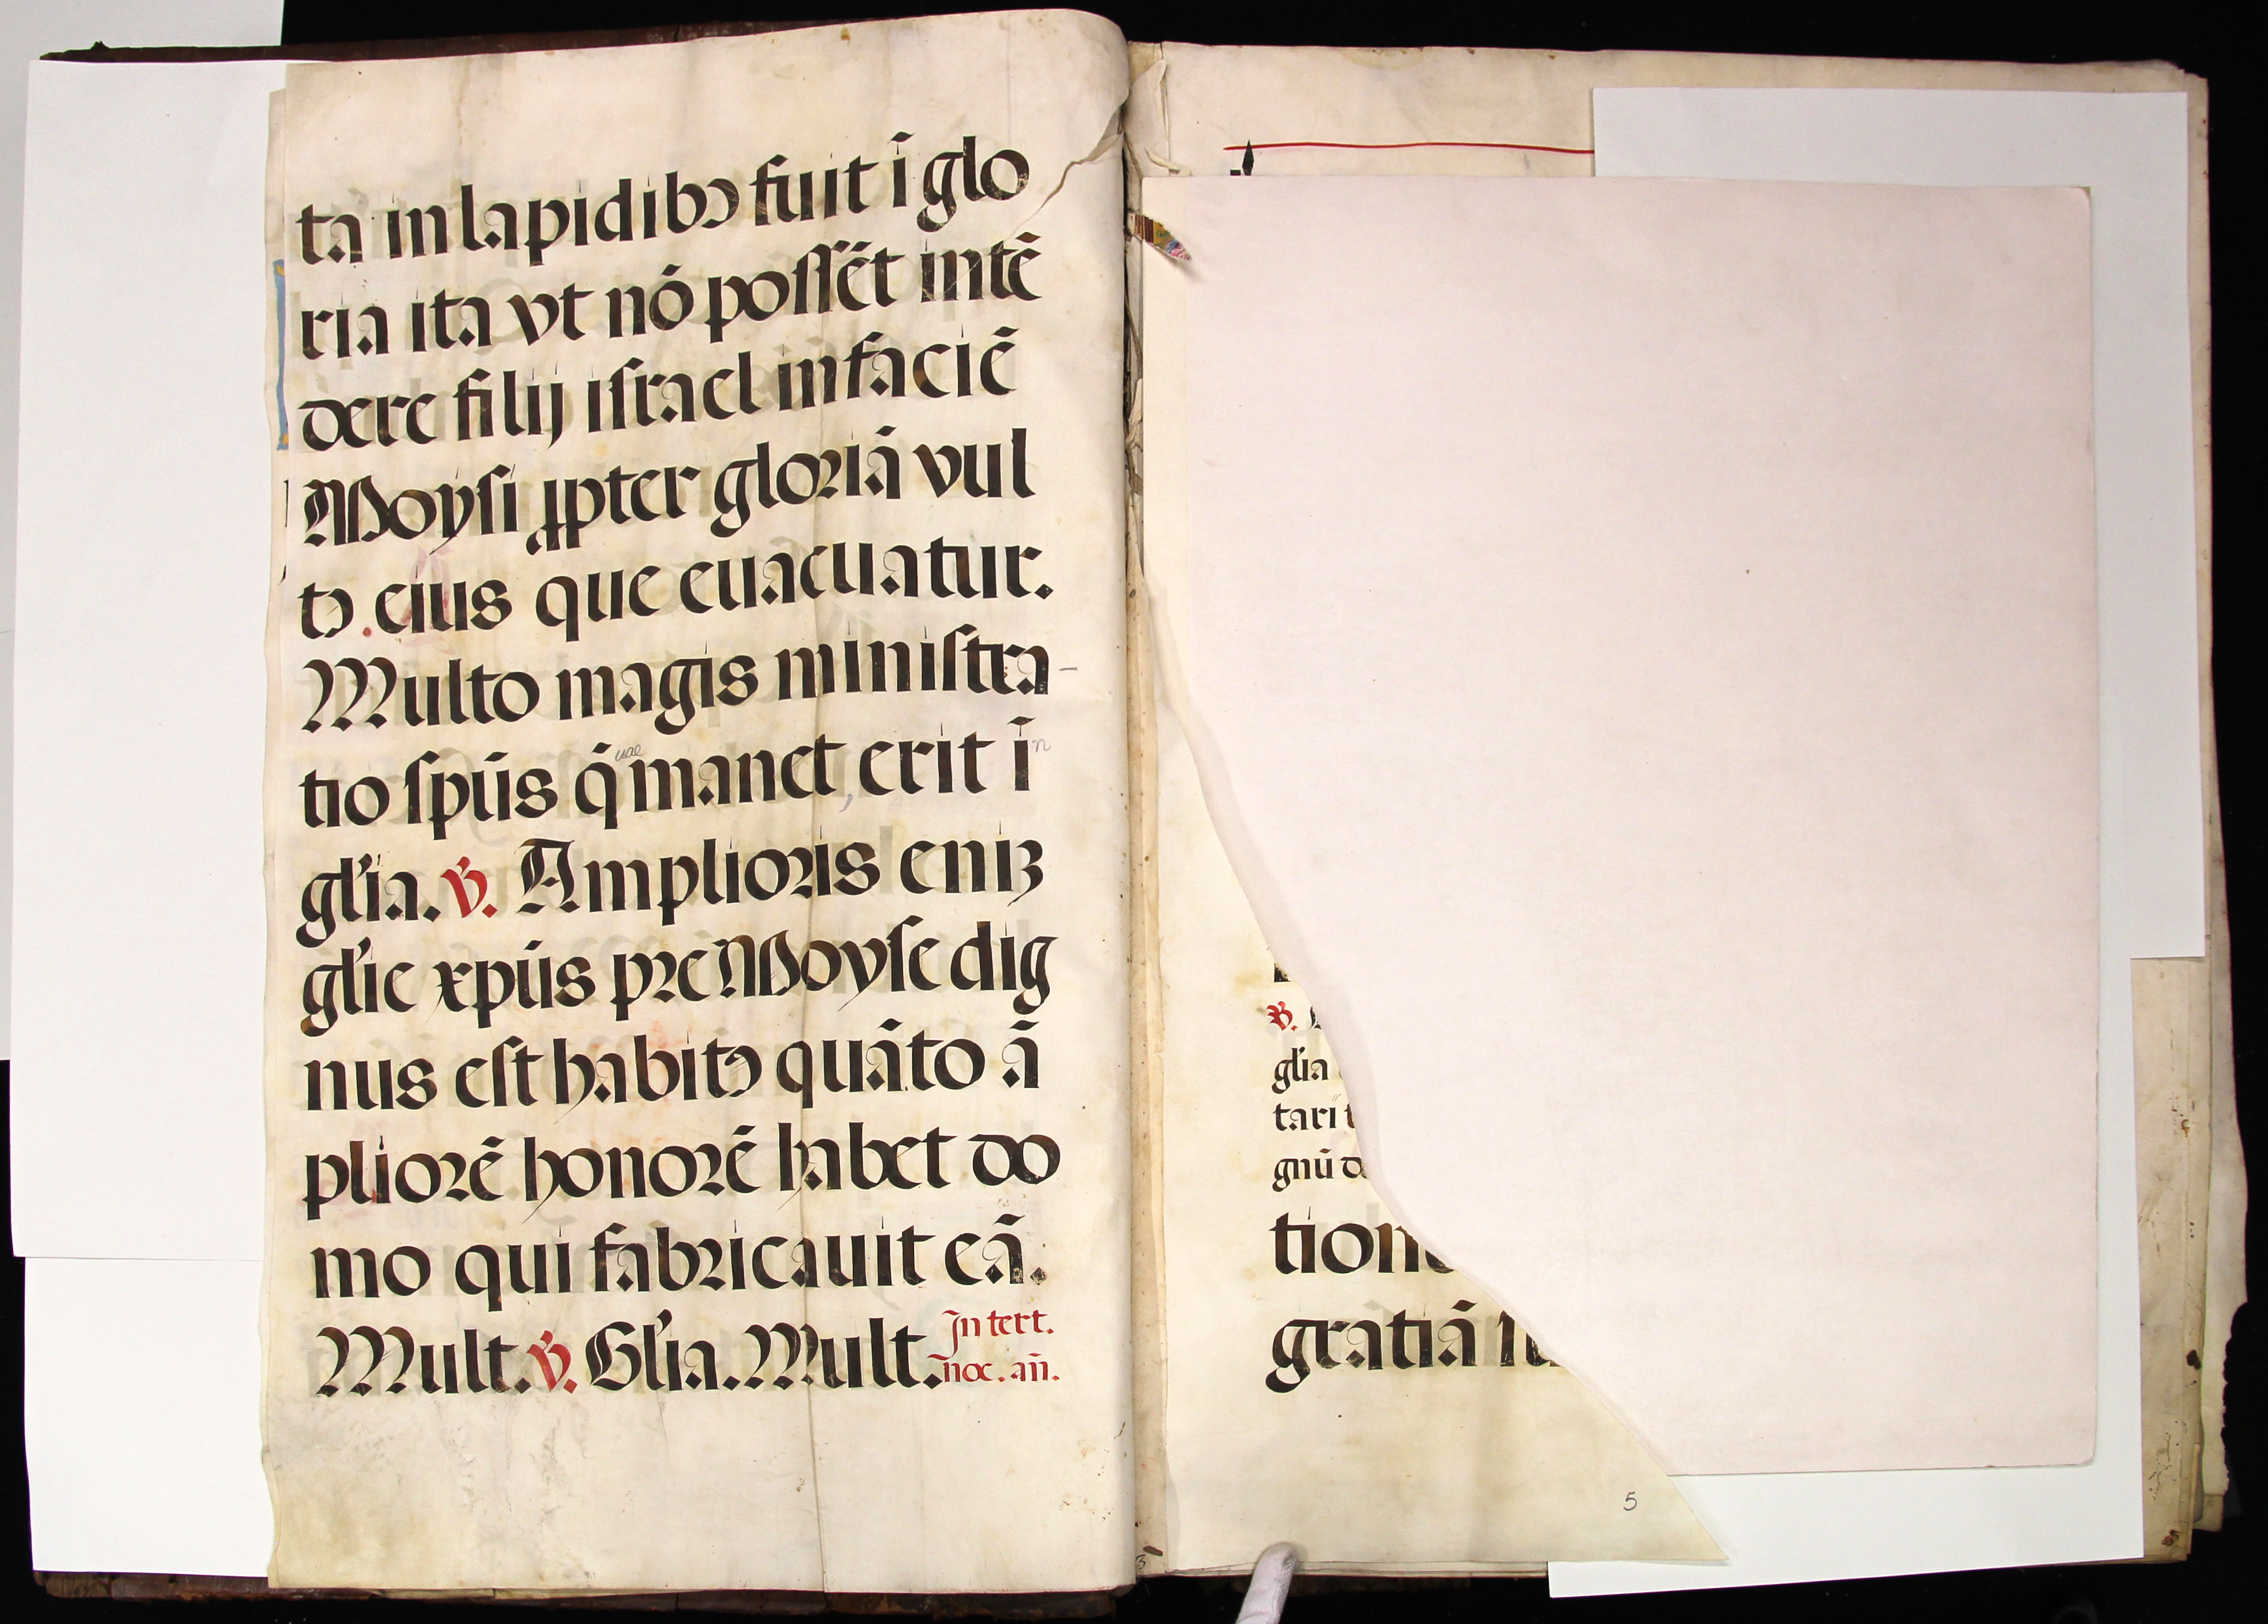 ta in lapidibꝰ fuit ī glo
ria ita vt nō possēt intē
dere filij israel in faciē
Moysi ꝓpter gloriā vul
tꝰ. eius que euacuatur.
Multo magis ministra-
tio spūs q̄ uae manet, erit ī n
gl'ia. ℣. Amplioris eniꝫ
gl'ie xpūs pre Moyse dig
nus est habitꝰ quāto ā
pliorē honorē habet do
mo qui fabricauit eā.
Mult. ℣. Gl'ia. Mult. In tert.
noc. an̄.
℣.
gl'ia
tari
gnū de
tione
gratiā
5
3